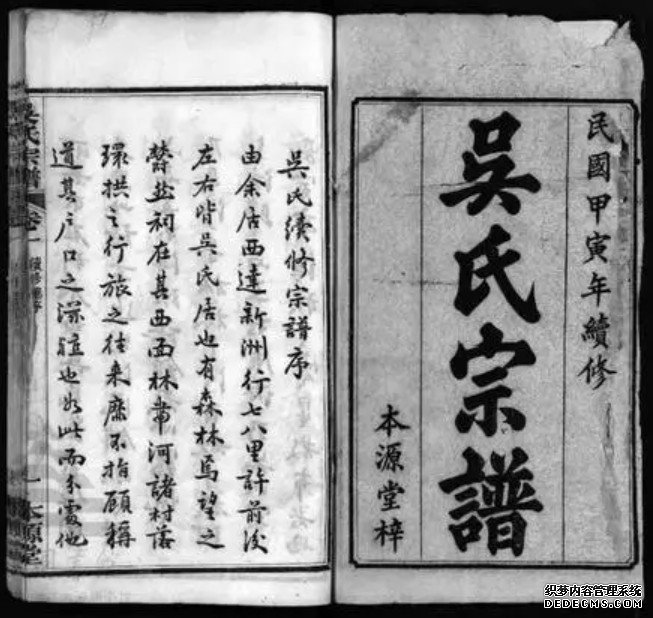 民國甲寅年續修
吳氏宗譜
本源堂梓
吳氏續修宗譜序
由余居西達新洲行七八里許前後
左右皆吳氏居也有森林焉望之
在其西西林帶河諸村落
環拱之行旅之往來靡不指顧稱
道其戶口之深殖也如此而分處他
吳氏宗譜
卷一
續修
一
本源堂
织梦内容管理系统
DEDECMS.COM